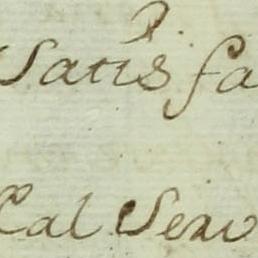 P.
Satis fa
Cal Serv